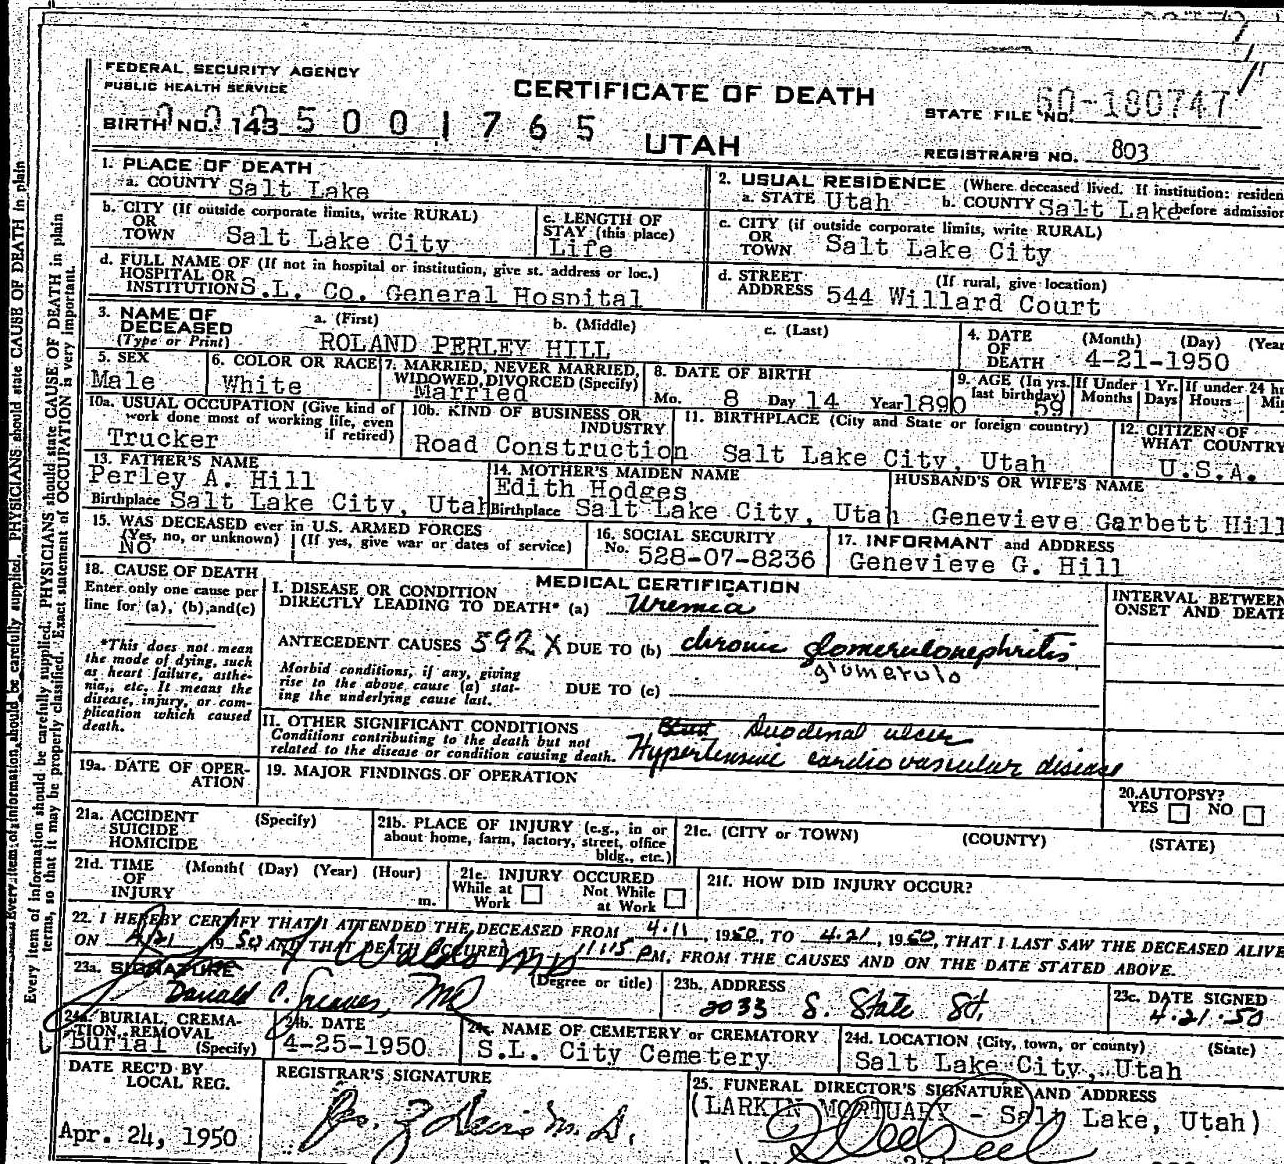 FEDERAL SECURITY AGENCY
PUBLIC HEALTH SERVICE
CERTIFICATE OF DEATH
UTAH
STATE FILE NO. 50-180747
BIRTH NO. 143 5 0 0 1 7 6 5
REGISTRAR'S NO. 803
1. PLACE OF DEATH
a. COUNTY Salt Lake
2. USUAL RESIDENCE (Where deceased lived. If institution: residen
a. STATE Utah b. COUNTY Salt Lake before admission
b. CITY (If outside corporate limits, write RURAL)
OR
TOWN Salt Lake City
c. LENGTH OF
STAY (this place)
Life
c. CITY (if outside corporate limits, write RURAL)
OR
TOWN Salt Lake City
d. FULL NAME OF (If not in hospital or institution, give st. address or loc.)
HOSPITAL OR
INSTITUTION S.L. Co. General Hospital
d. STREET (If rural, give location)
ADDRESS 544 Willard Court
3. NAME OF
DECEASED
(Type or Print)
a. (First) b. (Middle) c. (Last)
ROLAND PERLEY HILL
4. DATE (Month) (Day) (Year
OF
DEATH 4-21-1950
5. SEX
Male
6. COLOR OR RACE
White
7. MARRIED, NEVER MARRIED,
WIDOWED, DIVORCED (Specify)
Married
8. DATE OF BIRTH
Mo. 8 Day 14 Year 1890
9. AGE (In yrs.
last birthday)
59
If Under 1 Yr.
Months Days
If under 24 h
Hours Mi
10a. USUAL OCCUPATION (Give kind of
work done most of working life, even
if retired)
Trucker
10b. KIND OF BUSINESS OR
INDUSTRY
Road Construction
11. BIRTHPLACE (City and State or foreign country)
Salt Lake City, Utah
12. CITIZEN OF
WHAT COUNTRY
U.S.A.
13. FATHER'S NAME
Perley A. Hill
Birthplace Salt Lake City, Utah
14. MOTHER'S MAIDEN NAME
Edith Hodges
Birthplace Salt Lake City, Utah
HUSBAND'S OR WIFE'S NAME
Genevieve Garbett Hill
15. WAS DECEASED ever in U.S. ARMED FORCES
(Yes, no, or unknown) (If yes, give war or dates of service)
NO
16. SOCIAL SECURITY
No. 528-07-8236
17. INFORMANT and ADDRESS
Genevieve G. Hill
18. CAUSE OF DEATH
Enter only one cause per
line for (a), (b), and (c)
*This does not mean
the mode of dying, such
as heart failure, asthe-
nia, etc. It means the
disease, injury, or com-
plication which caused
death.
MEDICAL CERTIFICATION
I. DISEASE OR CONDITION
DIRECTLY LEADING TO DEATH* (a) Uremia
ANTECEDENT CAUSES 592 X DUE TO (b) chronic glomerulonephritis
glomerulo
Morbid conditions, if any, giving
rise to the above cause (a) stat-
ing the underlying cause last.
DUE TO (c)
INTERVAL BETWEEN
ONSET AND DEATH
II. OTHER SIGNIFICANT CONDITIONS
Conditions contributing to the death but not
related to the disease or condition causing death.
Duodenal ulcer
Hypertensive cardiovascular disease
19a. DATE OF OPER-
ATION
19. MAJOR FINDINGS OF OPERATION
20. AUTOPSY?
YES NO
21a. ACCIDENT (Specify)
SUICIDE
HOMICIDE
21b. PLACE OF INJURY (e.g., in or
about home, farm, factory, street, office
bldg., etc.)
21c. (CITY or TOWN) (COUNTY) (STATE)
21d. TIME (Month( (Day) (Year) (Hour)
OF
INJURY m.
21e. INJURY OCCURED
While at Work Not While at Work
21f. HOW DID INJURY OCCUR?
22. I HEREBY CERTIFY THAT I ATTENDED THE DECEASED FROM 4-11, 1950, TO 4-21, 1950, THAT I LAST SAW THE DECEASED ALIVE
ON 4/21 1950 AND THAT DEATH OCCURED AT 11:15 PM, FROM THE CAUSES AND ON THE DATE STATED ABOVE.
Waldo MD
23a. SIGNATURE (Degree or title)
Donald C. Greaves, MD
23b. ADDRESS
2033 S. State St.
23c. DATE SIGNED
4-21-50
24a. BURIAL, CREMA-
TION, REMOVAL
Burial (Specify)
24b. DATE
4-25-1950
24c. NAME OF CEMETERY or CREMATORY
S.L. City Cemetery
24d. LOCATION (City, town, or county) (State)
Salt Lake City, Utah
DATE REC'D BY
LOCAL REG.
Apr. 24, 1950
REGISTRAR'S SIGNATURE
M.D.
25. FUNERAL DIRECTOR'S SIGNATURE AND ADDRESS
(LARKIN MORTUARY - Salt Lake, Utah)
Every item of information should be carefully supplied. PHYSICIANS should state CAUSE OF DEATH in plain
Every item of information should be carefully supplied. PHYSICIANS should state CAUSE OF DEATH in plain
terms, so that it may be properly classified. Exact statement of OCCUPATION is very important.